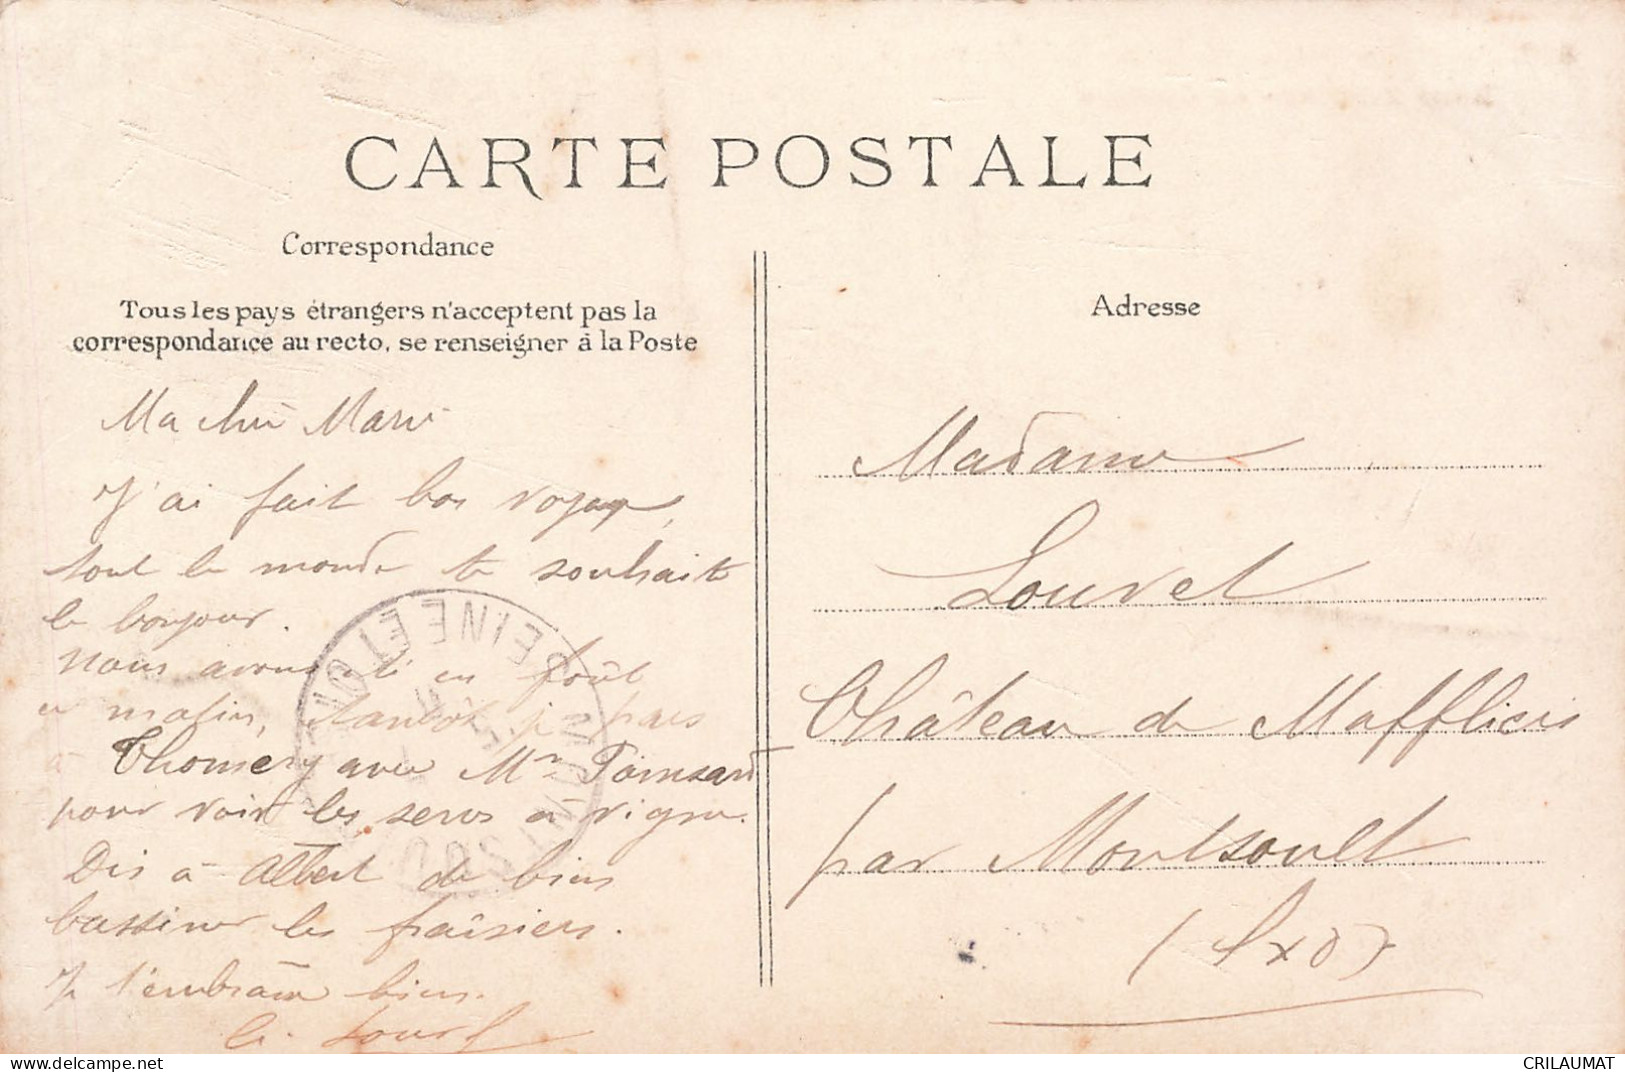 CARTE POSTALE
Correspondance
Tous les pays étrangers n'acceptent pas la
correspondance au recto, se renseigner à la Poste
Ma chère Marie
J'ai fait bon voyage,
tout le monde te souhaite
le bonjour.
Nous avons été en forêt
ce matin, tantôt je pars
à Thomery avec Mr
pour voir les serres à vigne.
Dis à Albert de bien
bassiner les fraisiers.
Je t'embrasse bien.
Louvet
Adresse
Madame
Louvet
Château de Maffliers
par Montsoult
(SxO)
SEINE ET OISE
CRILAUMAT